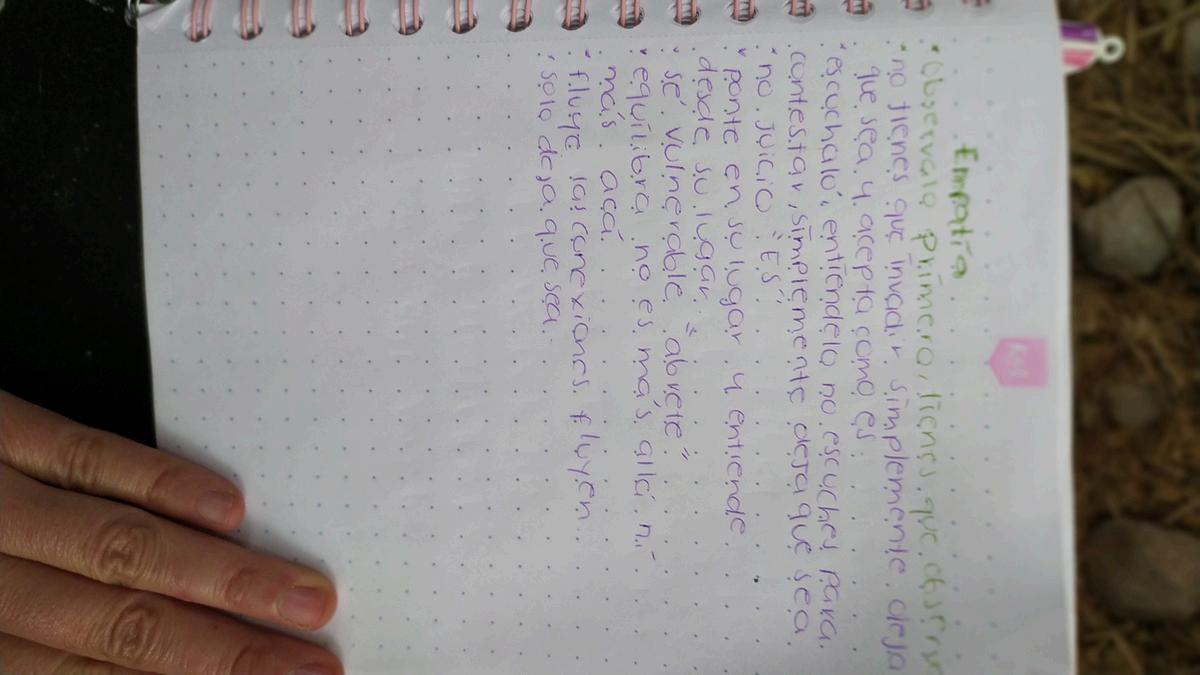 Empatía
• Obsérvalo primero, tienes que observ
• no tienes que invadir simplemente deja
que sea y acepta como es.
• escuchaló, entiendelo no escuches para
contestar, simplemente deja que sea
• no juicio "ES"
• ponte en su lugar y entiende
desde su lugar.
• sé vulnerable "abrete"
• equilibra no es más allá ni
más acá.
• fluye las conexiones fluyen.
• solo deja que sea.